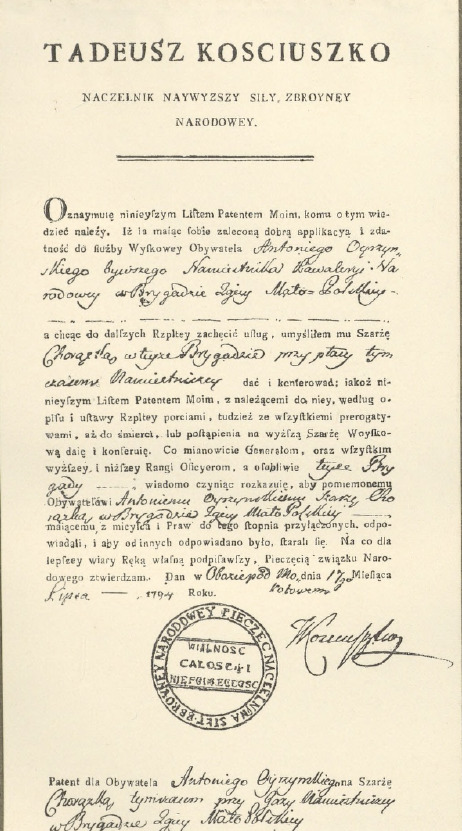 TADEUSZ KOSCIUSZKO
NACZELNIK NAYWYZSZY SIŁY, ZBROYNEY
NARODOWEY.
Oznaymuię ninieyszym Listem Patentem Moim, komu o tym wie-
dzieć należy. Iż Ia maiąc sobie zaleconą dobrą applikacyą i zda-
tność do służby Woyskowey Obywatela Antoniego Ogrzyn_
skiego bywszego Namiestnika Kawaleryi Na
rodowey w Brygadzie 2giey Mało-Polskiey
a chcąc do dalszych Rzpltey zachęcić usług, umyśliłem mu Szarżę
Chorążską w teyże Brygadzie przy płacy tym
czasem Namiestniczey dać i konferować; iakoż ni-
nieyszym Listem Patentem Moim, z należącemi do niey, według o-
pisu i ustawy Rzpltey porciami, tudzież ze wszystkiemi prerogaty-
wami, aż do śmierci, lub postąpienia na wyższą Szarżę Woysko-
wą daię i konferuię. Co mianowicie Generałom, oraz wszystkim
wyższey, i niższey Rangi Officyerom, a osobliwie teyże Bry
gady wiadomo czyniąc rozkazuię, aby pomienionemu
Obywatelowi Antoniemu Ogrzynskiemu Szarżę Cho
rążską w Brygadzie 2giey Mało Polskiey
maiącemu z mieysca i Praw do tego stopnia przyłączonych, odpo-
wiadali, i aby od innych odpowiadano było, starali się. Na co dla
lepszey wiary Ręką własną podpisawszy, Pieczęcią związku Naro-
dowego ztwierdzam. Dan w Obozie pod Mo, dnia 17go Miesiąca
kotowem
Lipca 1794 Roku.
PIECZĘĆ NACZELNIKA SIŁY ZBROYNEY NARODOWEY
WOLNOSC
CAŁOSC I
NIEPODLEGŁOSC
Patent dla Obywatela Antoniego Ogrzynskiego na Szarżę
Chorążską tymczasem przy Gaży Namiestniczey
w Brygadzie 2giey Mało Polskiey